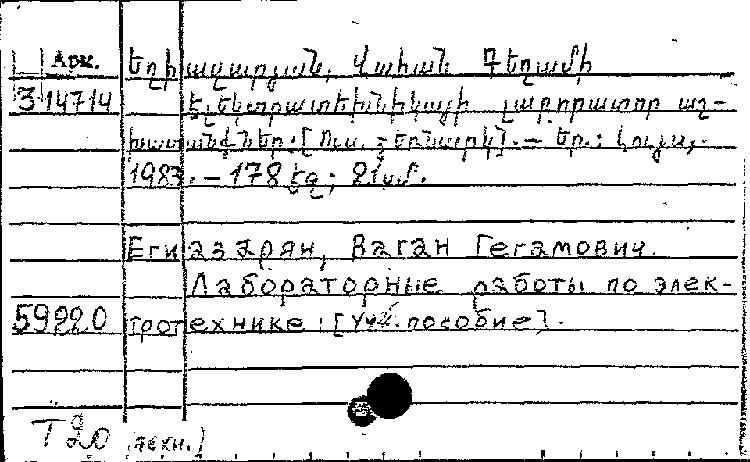 Арк. Եղիազարյան, Վահան Գեղամի
3-14714 Էլեկտրատեխնիկայի լաբորատոր աշ-
խատանքներ: [Ուս. ձեռնարկ]. – Եր.: Լույս,
1983. – 178 էջ; 21 սմ.
Егиазарян, Ваган Гегамович.
Лабораторные работы по элек-
59220 тротехнике: [Уч. пособие].
Т20 (техн.)